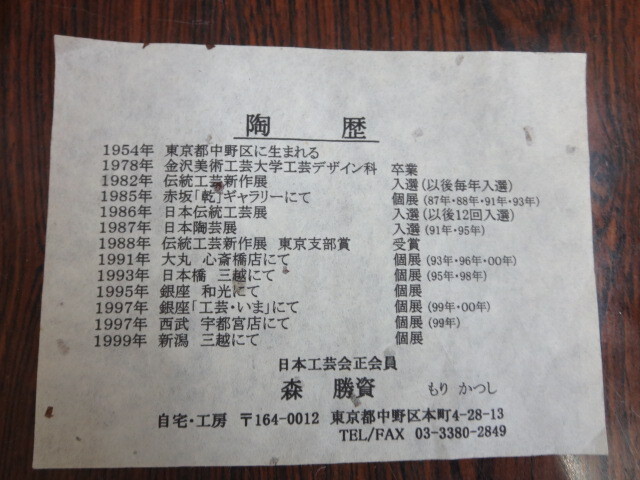 陶 歴
1954年 東京都中野区に生まれる
1978年 金沢美術工芸大学工芸デザイン科 卒業
1982年 伝統工芸新作展 入選(以後毎年入選)
1985年 赤坂「乾」ギャラリーにて 個展(87年・88年・91年・93年)
1986年 日本伝統工芸展 入選(以後12回入選)
1987年 日本陶芸展 入選(91年・95年)
1988年 伝統工芸新作展 東京支部賞 受賞
1991年 大丸 心斎橋店にて 個展(93年・96年・00年)
1993年 日本橋 三越にて 個展(95年・98年)
1995年 銀座 和光にて 個展
1997年 銀座「工芸・いま」にて 個展(99年・00年)
1997年 西武 宇都宮店にて 個展(99年)
1999年 新潟 三越にて 個展
日本工芸会正会員
森 勝資 もり かつし
自宅・工房 〒164-0012 東京都中野区本町4-28-13
TEL/FAX 03-3380-2849